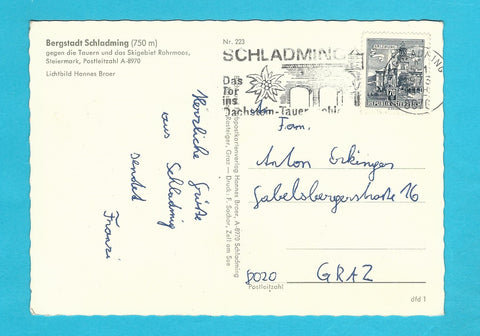 Bergstadt Schladming (750 m)
gegen die Tauern und das Skigebiet Rohrmoos,
Steiermark, Postleitzahl A-8970
Lichtbild Hannes Broer
Nr. 223
SCHLADMING
Das
Tor
ins
Dachstein-Tauern
Herzliche Grüße
aus Schladmig
sendet
Franzi
Postkartenverlag Hannes Broer, A-8970 Schladming
Graz — Druck: F. Sochor, Zell am See
REPUBLIK ÖSTERREICH
Fam.
Anton Erkinger
Gabelsbergerstraße 16
8020 GRAZ
Postleitzahl
dfd 1